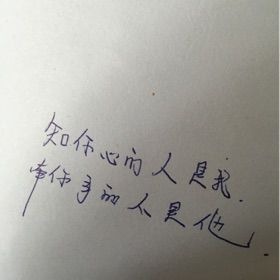 知你心的人是我.
牵你手的人是他